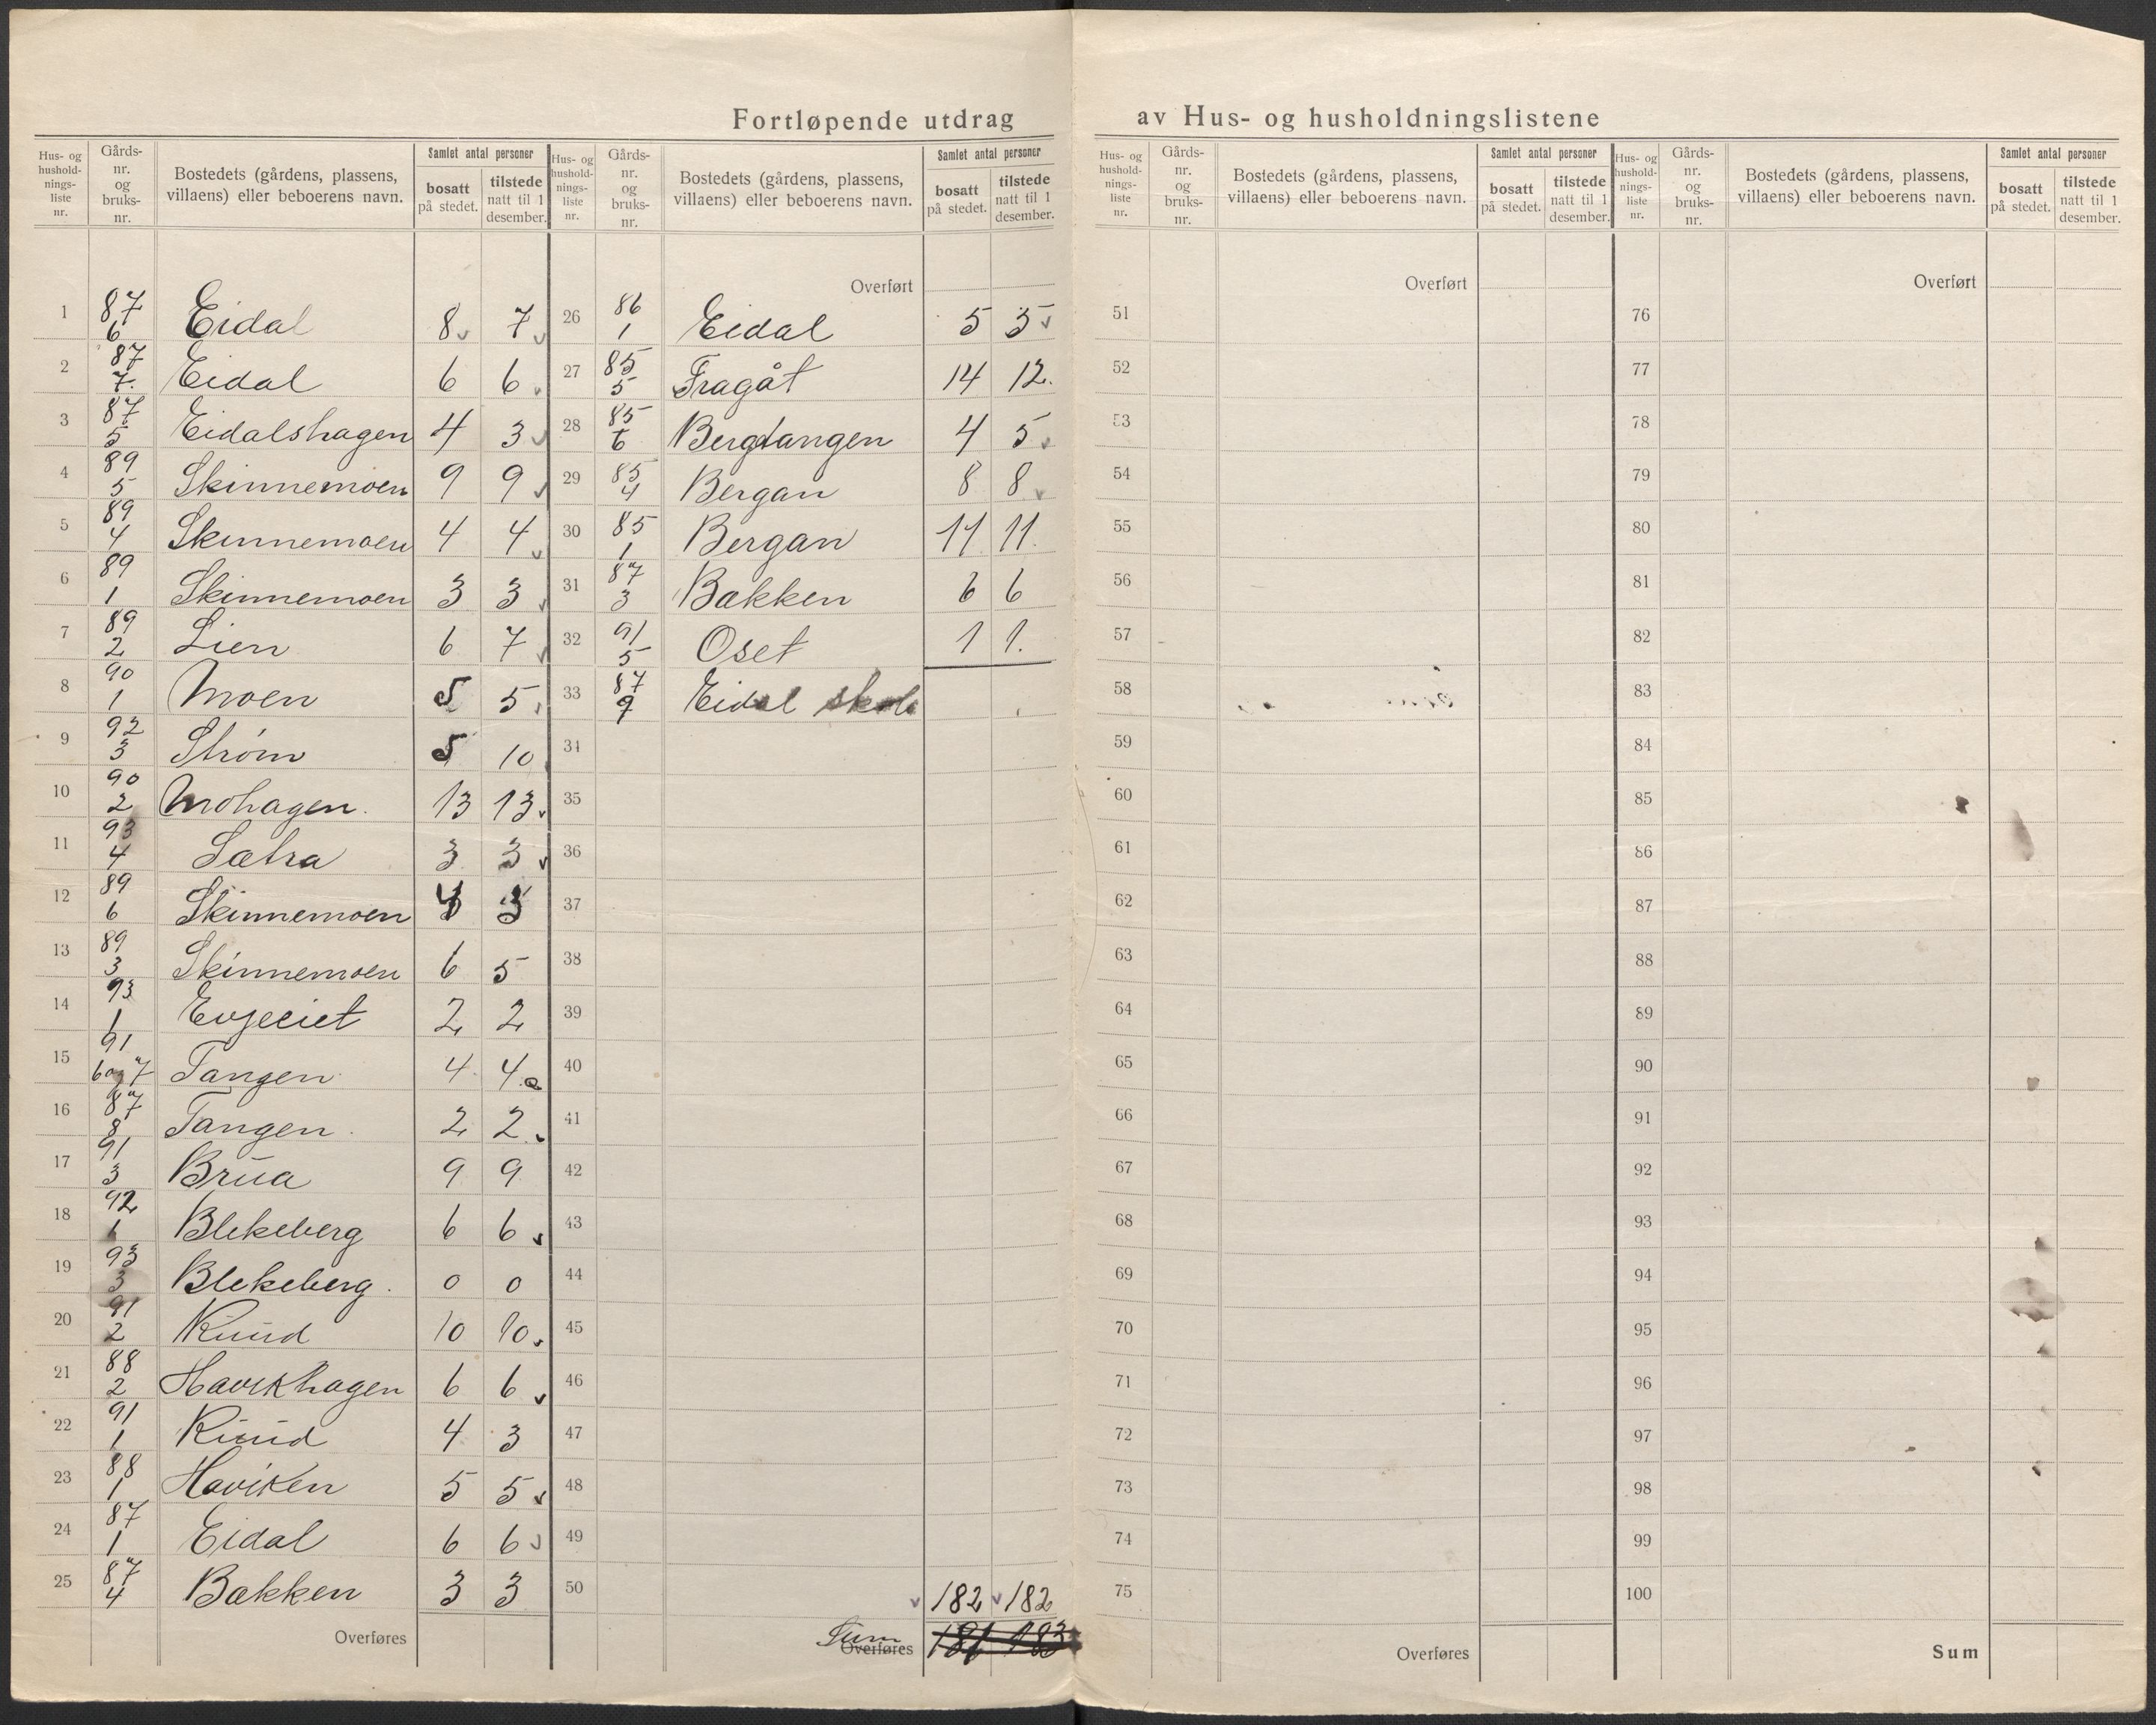 Fortløpende utdrag av Hus- og husholdningslistene
Hus- og hushold- nings- liste nr. | Gårds- nr. og bruks- nr. | Bostedets (gårdens, plassens, villaens) eller beboerens navn. | Samlet antal personer | bosatt på stedet. | tilstede natt til 1 desember.
1 87/6 Eidal 8 7
2 87/7 Eidal 6 6
3 87/5 Eidalshagen 4 3
4 89/5 Skinnemoen 9 9
5 89/4 Skinnemoen 4 4
6 89/1 Skinnemoen 3 3
7 89/2 Lien 6 7
8 90/1 Moen 5 5
9 92/3 Strøm 5 10
10 90/2 Mohagen. 13 13
11 93/4 Sætra 3 3
12 89/6 Skinnemoen 3
13 89/3 Skinnemoen 6 5
14 93/1 2 2
15 91/6 og 7 Tangen 4 4
16 87/8 Tangen. 2 2
17 91/3 Brua 9 9
18 92/1 Blekeberg 6 6
19 93/3 Blekeberg. 0 0
20 91/2 Ruud 10 10
21 88/2 Havikhagen 6 6
22 91/1 Ruud 4 3
23 88/1 Haviken 5 5
24 87/1 Eidal 6 6
25 87/4 Bakken 3 3
Overføres
Hus- og hushold- nings- liste nr. | Gårds- nr. og bruks- nr. | Bostedets (gårdens, plassens, villaens) eller beboerens navn. | Samlet antal personer | bosatt på stedet. | tilstede natt til 1 desember.
Overført
26 86/1 Eidal 5 3
27 85/5 Fragåt 14 12.
28 85/6 Bergtangen 4 5
29 85/4 Bergan 8 8
30 85/1 Bergan 11 11.
31 87/3 Bakken 6 6
32 91/5 Oset 1 1.
33 87/9 Eidal skole
34
35
36
37
38
39
40
41
42
43
44
45
46
47
48
49
50
182 182
Sum Overføres 183
Hus- og hushold- nings- liste nr. | Gårds- nr. og bruks- nr. | Bostedets (gårdens, plassens, villaens) eller beboerens navn. | Samlet antal personer | bosatt på stedet. | tilstede natt til 1 desember.
Overført
51
52
53
54
55
56
57
58
59
60
61
62
63
64
65
66
67
68
69
70
71
72
73
74
75
Overføres
Hus- og hushold- nings- liste nr. | Gårds- nr. og bruks- nr. | Bostedets (gårdens, plassens, villaens) eller beboerens navn. | Samlet antal personer | bosatt på stedet. | tilstede natt til 1 desember.
Overført
76
77
78
79
80
81
82
83
84
85
86
87
88
89
90
91
92
93
94
95
96
97
98
99
100
Sum